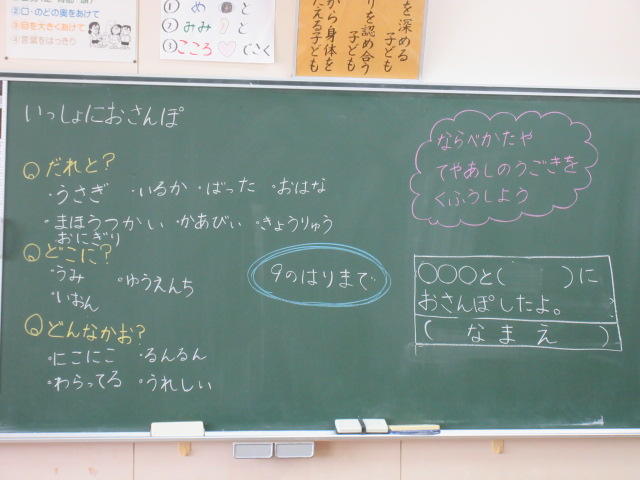 ②口・のどの奥をあけて
③目を大きくあけて
④言葉をはっきり
① め と
② みみ と
③ こころ じくく
を深める
子ども
りを認め合う
子ども
から身体を
たえる子ども
いっしょにおさんぽ
Q だれと?
・うさぎ ・いるか ・ばった ・おはな
・まほうつかい ・かあびぃ ・きょうりゅう
おにぎり
Q どこに?
・うみ ・ゆうえんち
・いおん
Q どんなかお?
・にこにこ ・るんるん
・わらってる ・うれしい
9のはりまで
ならべかたや
てやあしのうごきを
くふうしよう
○○○と( )に
おさんぽしたよ。
( なまえ )